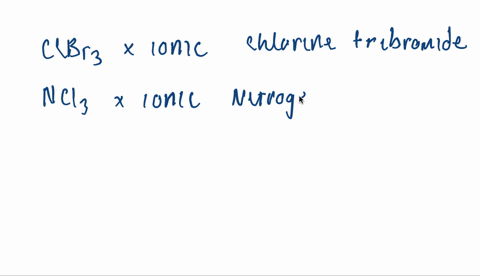 ClBr3 x ionic chlorine tribromide
NCl3 x ionic Nitrog